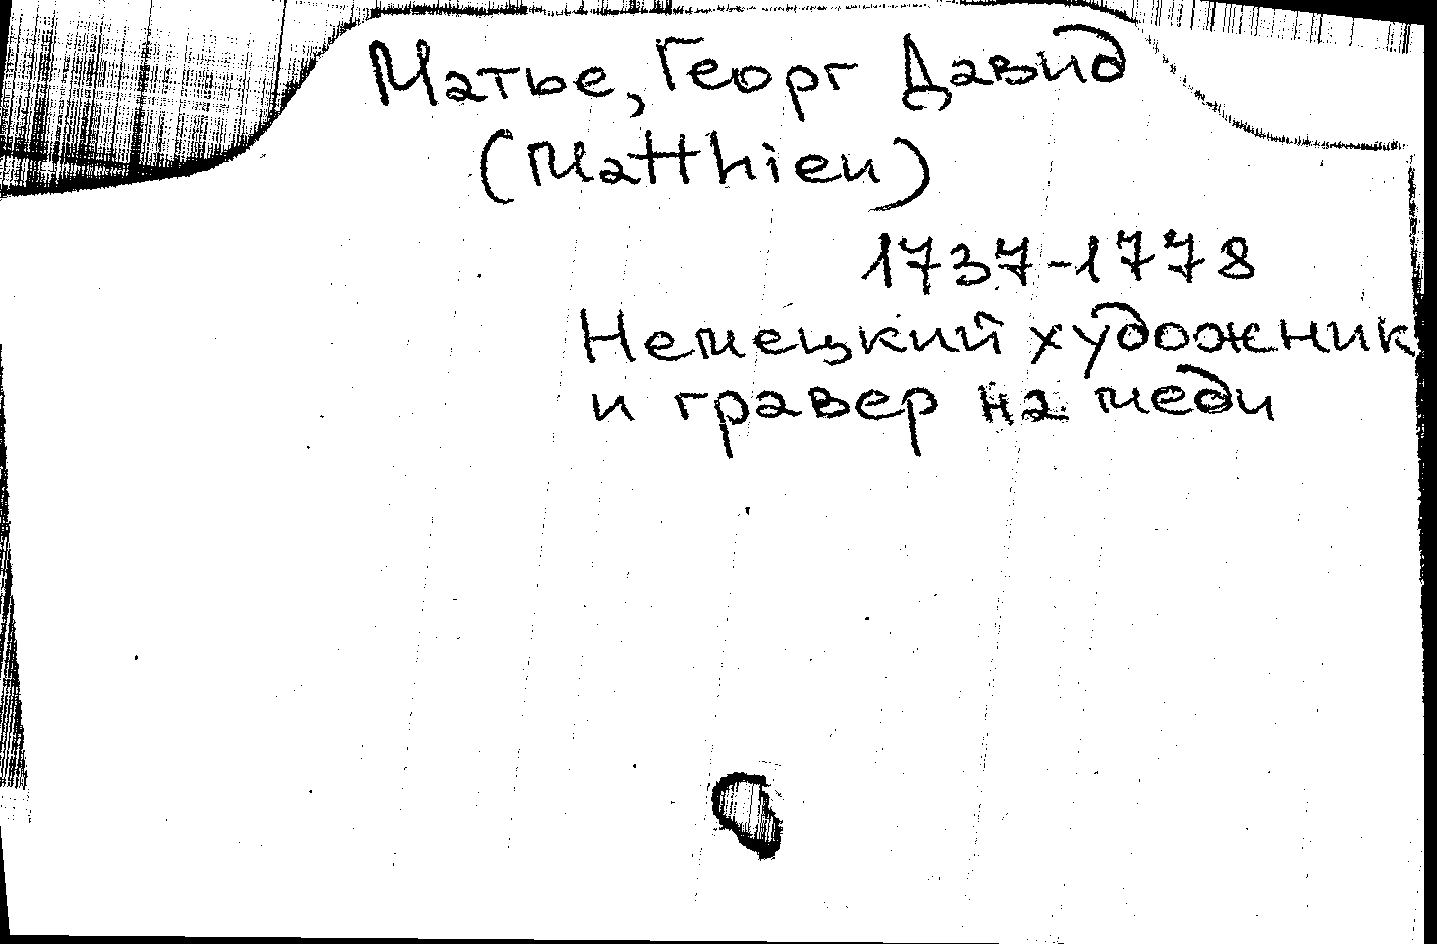 Матье, Георг Давид
(Matthieu)
1737-1778
Немецкий художник
и гравер на меди